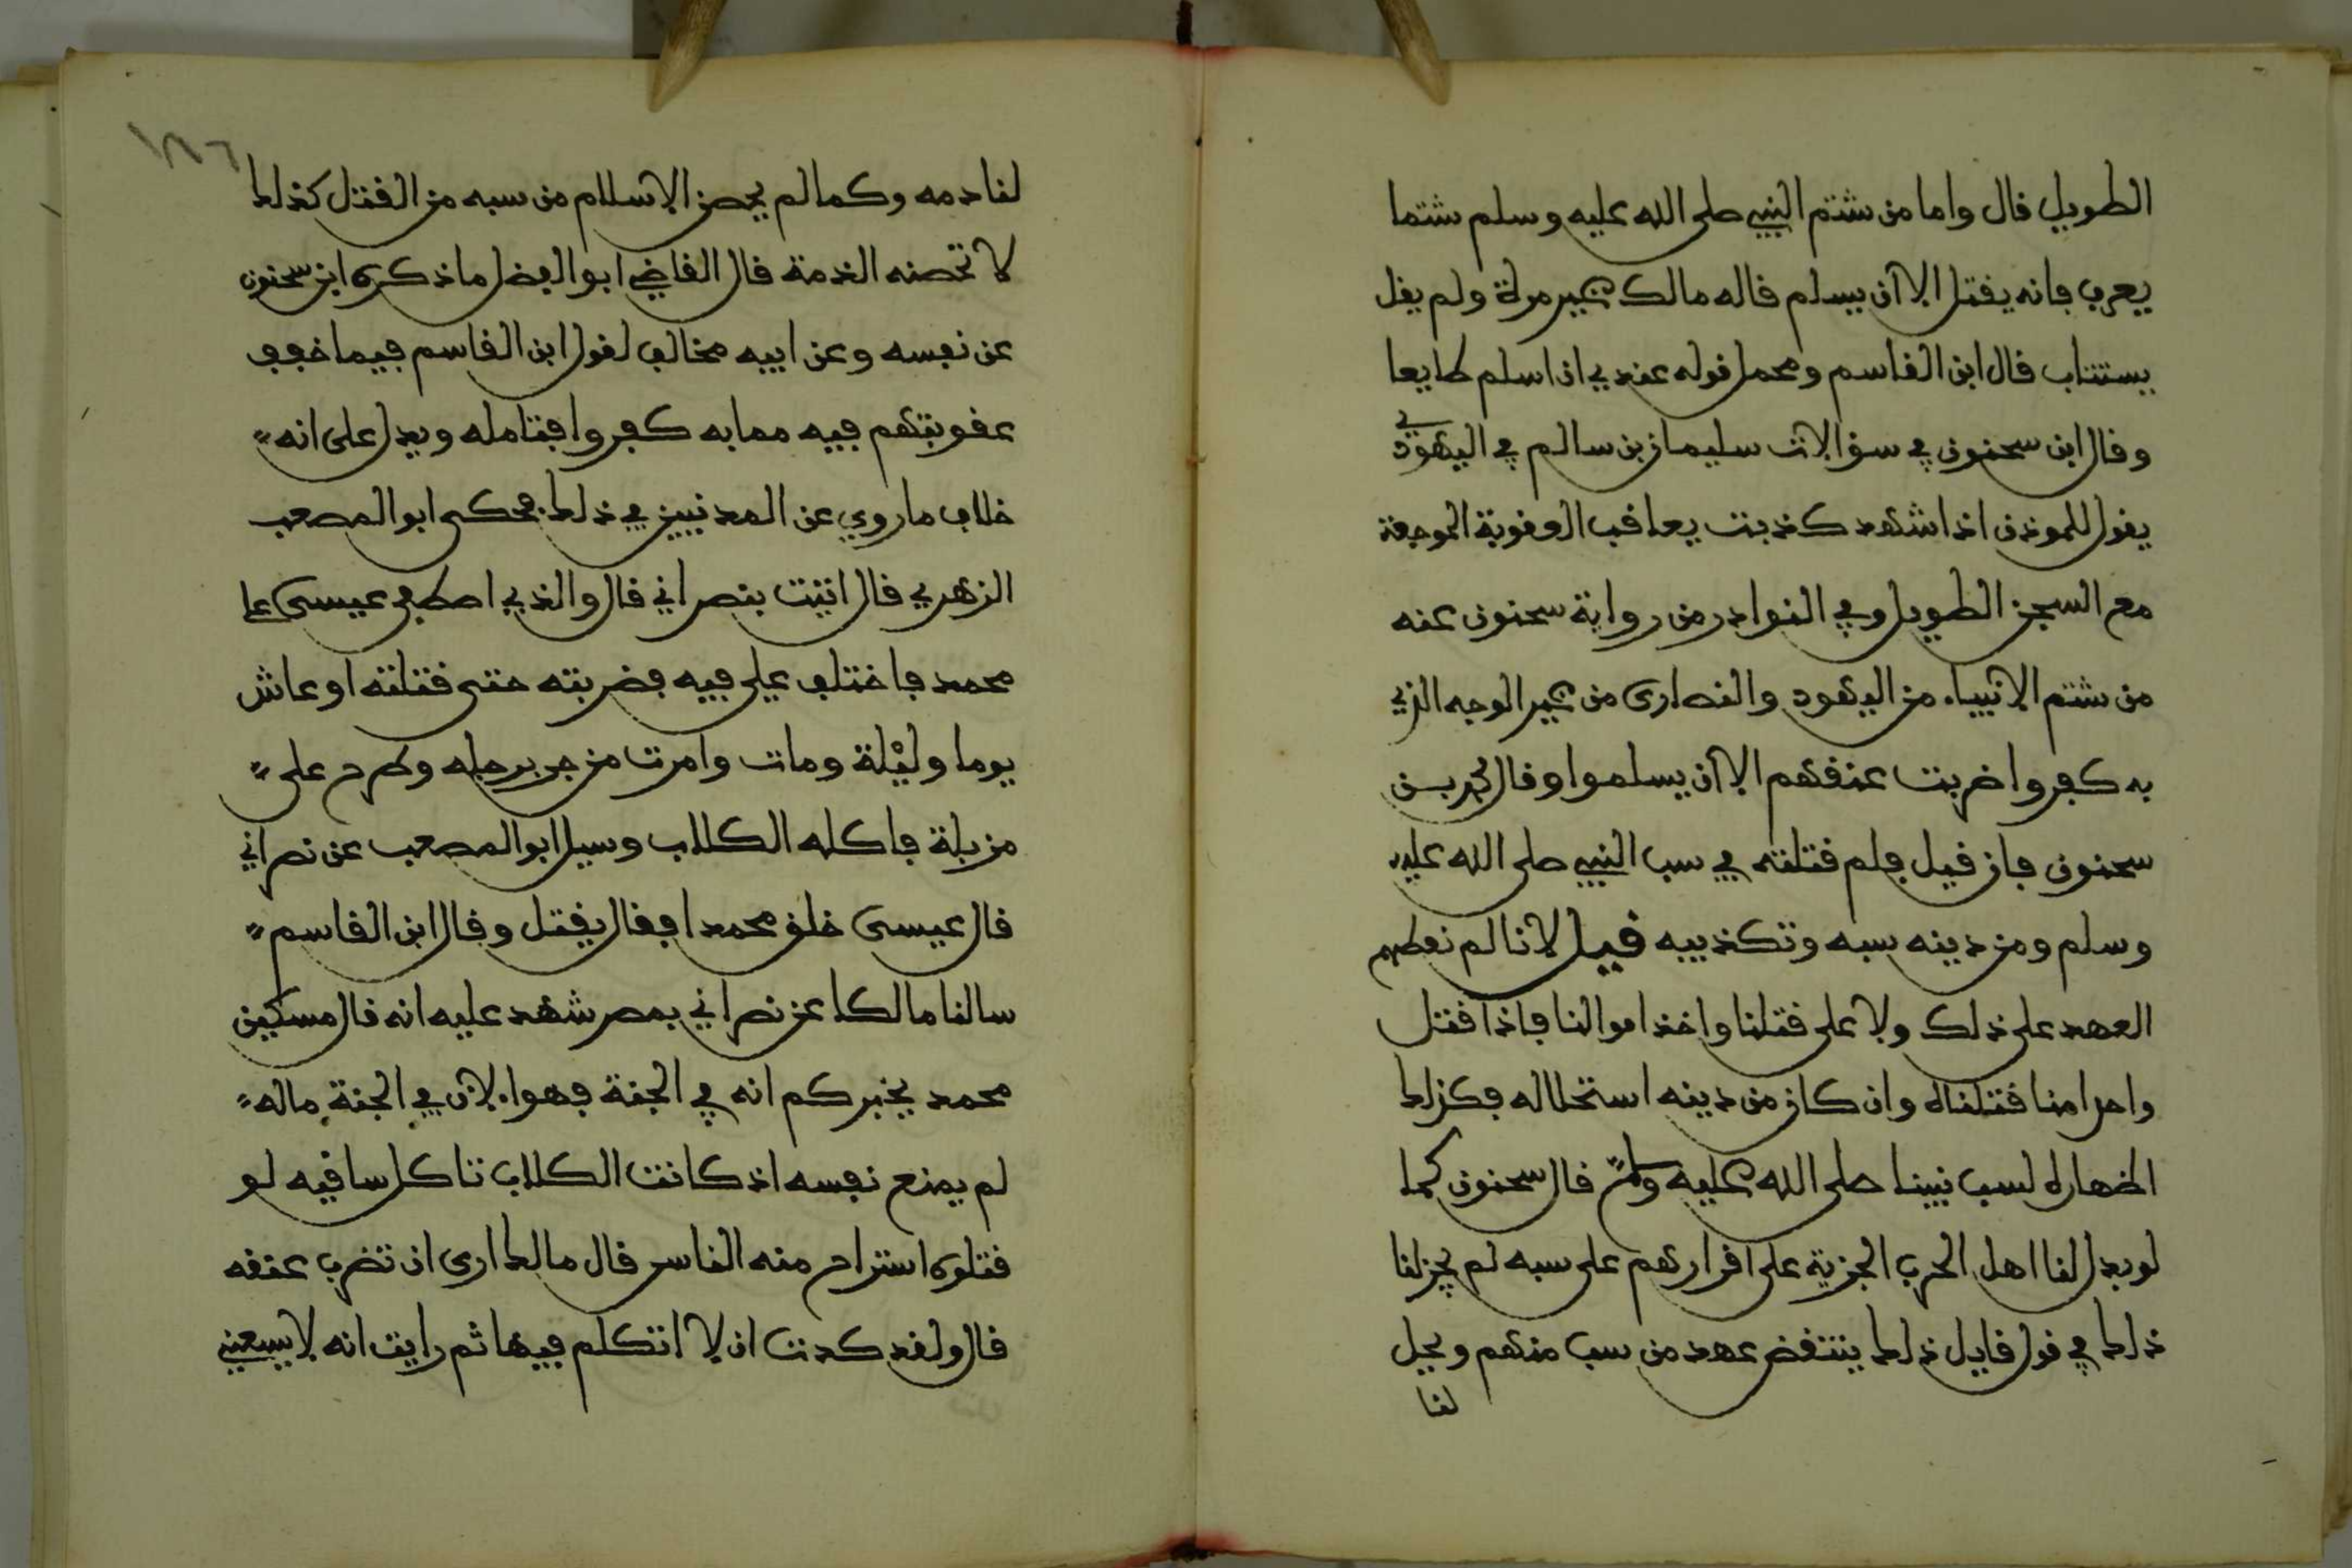 الطويل قال واما من شتم النبي صلى الله عليه وسلم شتما
يعرب فانه يقتل الا ان يسلم قاله مالك غير مرة ولم يقل
يستتاب قال ابن القاسم ومحمل قوله عندي ان اسلم طايعا
وقال ابن سحنون في سؤالات سليمان بن سالم في اليهودي
يقول للموذن اذا شهد كذبت يعاقب العقوبة الموجعة
مع السجن الطويل وفي النوادر من رواية سحنون عنه
من شتم الانبياء من اليهود والنصارى من غير الوجه الذي
به كفروا ضربت عنقهم الا ان يسلموا وقال محمد بن
سحنون فان قيل فلم قتلته في سب النبي صلى الله عليه
وسلم ومن دينه سبه وتكذيبه قيل لانا لم نعطهم
العهد على ذلك ولا على قتلنا واخذ اموالنا فاذا قتل
واحدا منا قتلناه وان كان من دينه استحلاله فكذلك
اظهاره لسب نبينا صلى الله عليه وسلم قال سحنون كما
لو بذل لنا اهل الحرب الجزية على اقرارهم على سبه لم يجز لنا
ذلك في قول قايل ذلك ينتقض عهد من سب منهم ويحل
لنا
١٨٦
لنا دمه وكما لم يحصن الاسلام من سبه من القتل كذلك
لا تحصنه الذمة قال القاضي ابو الفضل ما ذكره ابن سحنون
عن نفسه وعن ابيه مخالف لقول ابن القاسم فيما خفف
عقوبتهم فيه مما به كفروا فتامله ويدل على انه
خلاف ما روي عن المدنيين في ذلك فحكى ابو المصعب
الزهري قال اتيت بنصراني قال والذي اصطفى عيسى على
محمد فاختلف علي فيه فضربته حتى قتلته او عاش
يوما وليلة ومات وامرت من جر برجله وطرح على
مزبلة فاكله الكلاب وسيل ابو المصعب عن نصراني
قال عيسى خلق محمدا فقال يقتل وقال ابن القاسم
سالنا مالكا عن نصراني بمصر شهد عليه انه قال مسكين
محمد يخبركم انه في الجنة فهو الان في الجنة ماله
لم يمنع نفسه اذ كانت الكلاب تاكل ساقيه لو
قتلوه استراح منه الناس قال مالك ارى ان تضرب عنقه
قال ولقد كدت ان لا اتكلم فيها ثم رايت انه لا يسعني